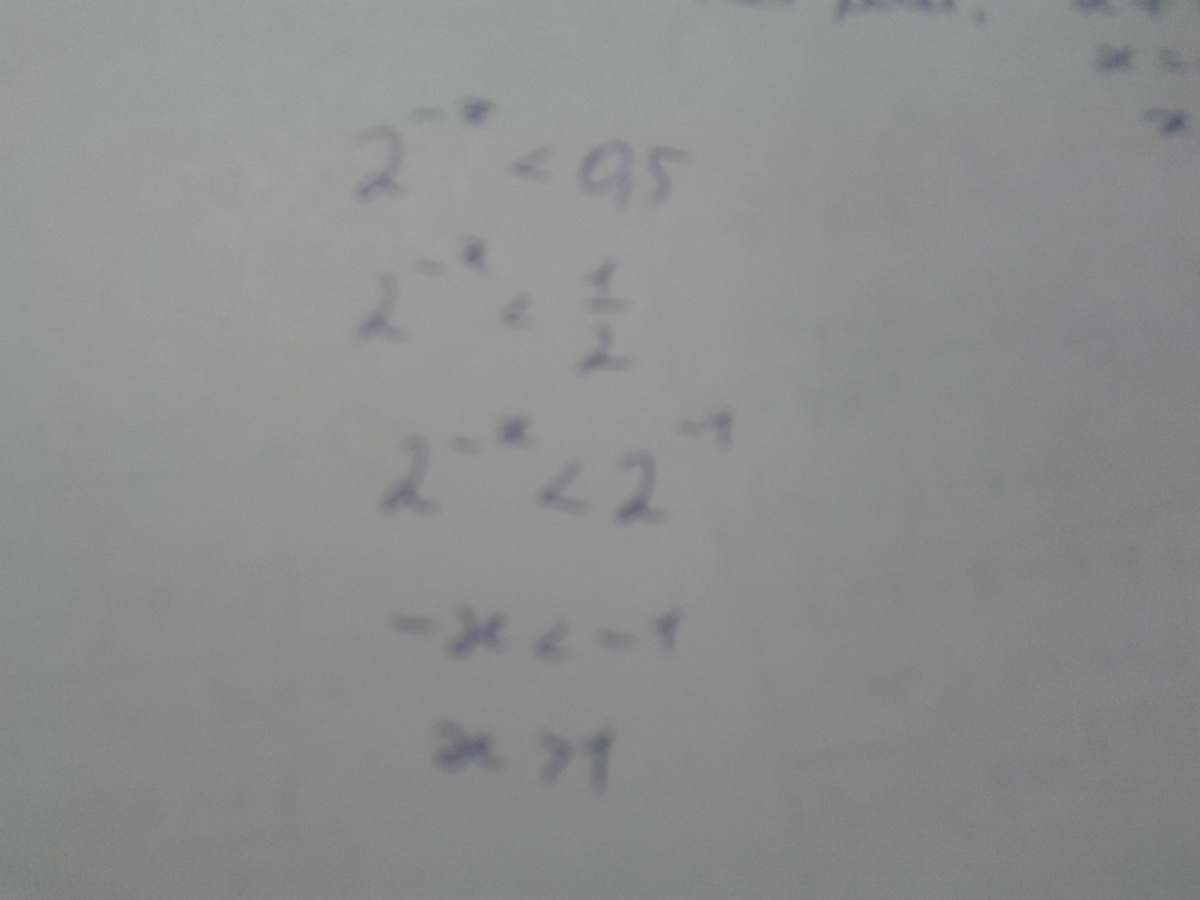 2^{-x} < 0,5
2^{-x} < \frac{1}{2}
2^{-x} < 2^{-1}
-x < -1
x > 1